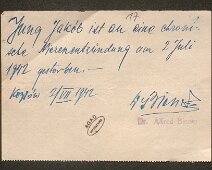 17
Jung Jakób ist an eine chroni-
sche Nierenentzündung am 2 Juli
1942 gestorben.—
2/VII 1942
Dr. Alfred